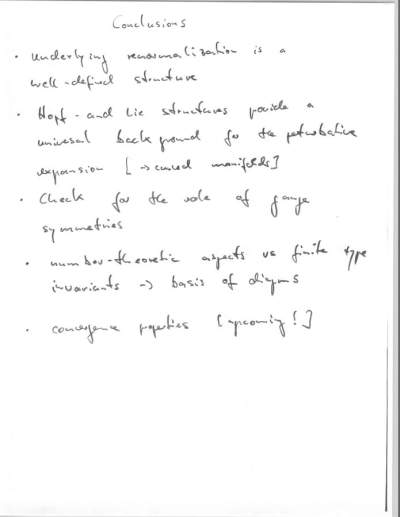 Conclusions
• underlying renormalization is a
well-defined structure
• Hopf- and Lie structures provide a
universal background for the perturbative
expansion [→ curved manifolds]
• Check for the role of gauge
symmetries
• number-theoretic aspects vs finite type
invariants → basis of diagrams
• convergence properties [upcoming!]